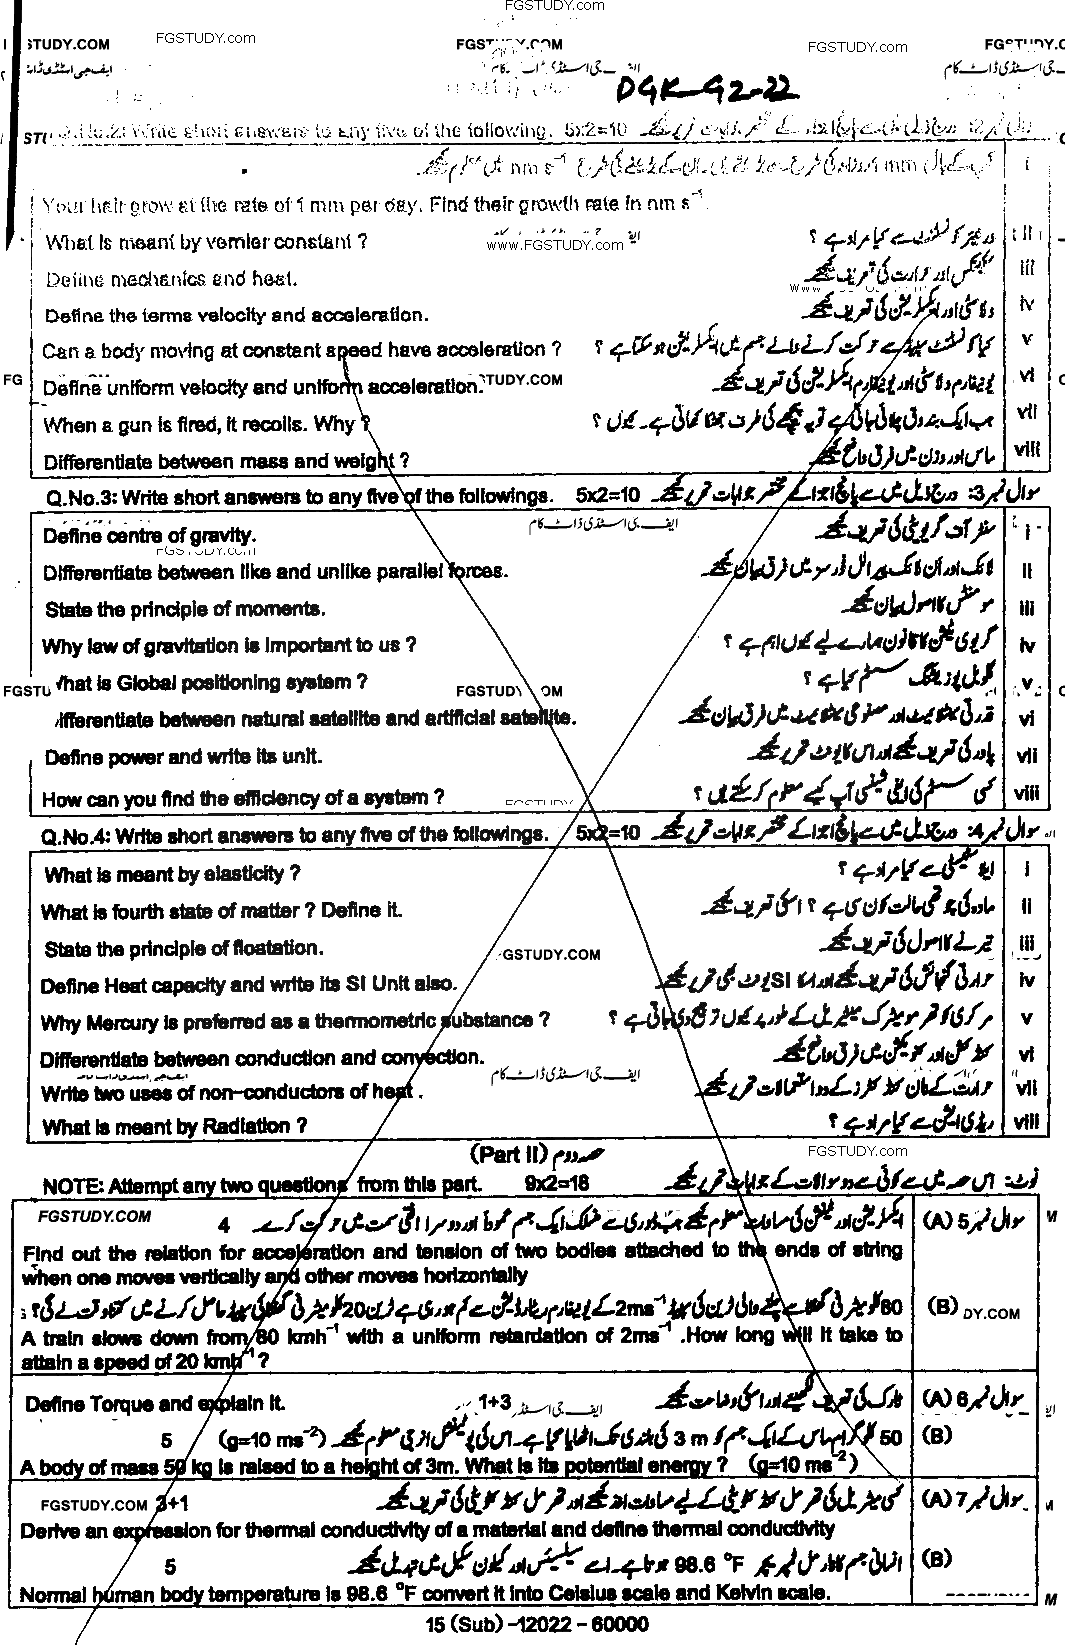 FGSTUDY.COM
STUDY.COM FGSTUDY.com FGSTUDY.COM FGSTUDY.com
ایف جی اسٹڈی ڈاٹ کام
DGK-G2-22
Write short answers to any five of the following. 5x2=10
i
Your hair grow at the rate of 1 mm per day. Find their growth rate in nm s⁻¹.
What is meant by vernier constant ? ورنیئر کونسٹنٹ سے کیا مراد ہے ؟ ii
www.FGSTUDY.com
Define mechanics and heat. مکینکس اور حرارت کی تعریف کیجئے iii
Define the terms velocity and acceleration. ولاسٹی اور ایکسلریشن کی تعریف کیجئے iv
Can a body moving at constant speed have acceleration ? کیا کونسٹنٹ سپیڈ سے حرکت کرنے والے جسم میں ایکسلریشن ہو سکتا ہے ؟ v
Define uniform velocity and uniform acceleration. یونیفارم ولاسٹی اور یونیفارم ایکسلریشن کی تعریف کیجئے vi
When a gun is fired, it recoils. Why ? جب ایک بندوق چلائی جاتی ہے تو یہ پیچھے کی طرف جھٹکا کھاتی ہے۔ کیوں ؟ vii
Differentiate between mass and weight ? ماس اور وزن میں فرق واضح کیجئے viii
Q.No.3: Write short answers to any five of the followings. 5x2=10 سوال نمبر 3: درج ذیل میں سے پانچ اجزا کے مختصر جوابات تحریر کیجئے
ایف جی اسٹڈی ڈاٹ کام
Define centre of gravity. سنٹر آف گریویٹی کی تعریف کیجئے i
Differentiate between like and unlike parallel forces. لائک اور ان لائک پیرالل فورسز میں فرق بیان کیجئے ii
State the principle of moments. مومنٹس کا اصول بیان کیجئے iii
Why law of gravitation is important to us ? گریوی ٹیشن کا قانون ہمارے لیے کیوں اہم ہے ؟ iv
What is Global positioning system ? گلوبل پوزیشننگ سسٹم کیا ہے ؟ v
FGSTUDY.COM
ifferentiate between natural satellite and artificial satellite. قدرتی سیٹلائیٹ اور مصنوعی سیٹلائیٹ میں فرق بیان کیجئے vi
Define power and write its unit. پاور کی تعریف کیجئے اور اس کا یونٹ تحریر کیجئے vii
How can you find the efficiency of a system ? کسی سسٹم کی ایفی شینسی آپ کیسے معلوم کر سکتے ہیں ؟ viii
Q.No.4: Write short answers to any five of the followings. 5x2=10 سوال نمبر 4: درج ذیل میں سے پانچ اجزا کے مختصر جوابات تحریر کیجئے
What is meant by elasticity ? سے کیا مراد ہے ؟ i
What is fourth state of matter ? Define it. مادہ کی چوتھی حالت کون سی ہے ؟ اسکی تعریف کیجئے ii
State the principle of floatation. تیرنے کا اصول کی تعریف کیجئے iii
GSTUDY.COM
Define Heat capacity and write its SI Unit also. حرارتی گنجائش کی تعریف کیجئے اور اسکا SI یونٹ بھی تحریر کیجئے iv
Why Mercury is preferred as a thermometric substance ? مرکری کو تھرمومیٹرک میٹیریل کے طور پر کیوں ترجیح دی جاتی ہے ؟ v
Differentiate between conduction and convection. کنڈکشن اور کنویکشن میں فرق واضح کیجئے vi
ایف جی اسٹڈی ڈاٹ کام
Write two uses of non-conductors of heat . حرارت کے نان کنڈکٹرز کے دو استعمالات تحریر کیجئے vii
What is meant by Radiation ? ریڈی ایشن سے کیا مراد ہے ؟ viii
(Part II) حصہ دوم
FGSTUDY.com
NOTE: Attempt any two questions from this part. 9x2=18 نوٹ: اس حصہ میں سے کوئی سے دو سوالات کے جوابات تحریر کیجئے
FGSTUDY.COM 4 سوال نمبر 5 (A)
Find out the relation for acceleration and tension of two bodies attached to the ends of string
when one moves vertically and other moves horizontally
(B) DY.COM
A train slows down from 80 kmh⁻¹ with a uniform retardation of 2ms⁻¹ .How long will it take to
attain a speed of 20 kmh⁻¹ ?
Define Torque and explain it. 1+3 ٹارک کی تعریف کیجئے اور اسکی وضاحت کیجئے سوال نمبر 6 (A)
5 (g=10 ms⁻²) 50 کلوگرام ماس کے ایک جسم کو 3 m کی بلندی تک اٹھایا گیا ہے۔ اس کی پوٹینشل انرجی معلوم کیجئے (B)
A body of mass 50 kg is raised to a height of 3m. What is its potential energy ? (g=10 ms⁻²)
FGSTUDY.COM 3+1 کسی میٹریل کی تھرمل کنڈکٹیویٹی کے لیے مساوات اخذ کیجئے اور تھرمل کنڈکٹیویٹی کی تعریف کیجئے سوال نمبر 7 (A)
Derive an expression for thermal conductivity of a material and define thermal conductivity
5 انسانی جسم کا نارمل ٹمپریچر 98.6 °F ہوتا ہے۔ اسے سیلسیئس اور کیلون سکیل میں تبدیل کیجئے (B)
Normal human body temperature is 98.6 °F convert it into Celsius scale and Kelvin scale.
15 (Sub) -12022 - 60000